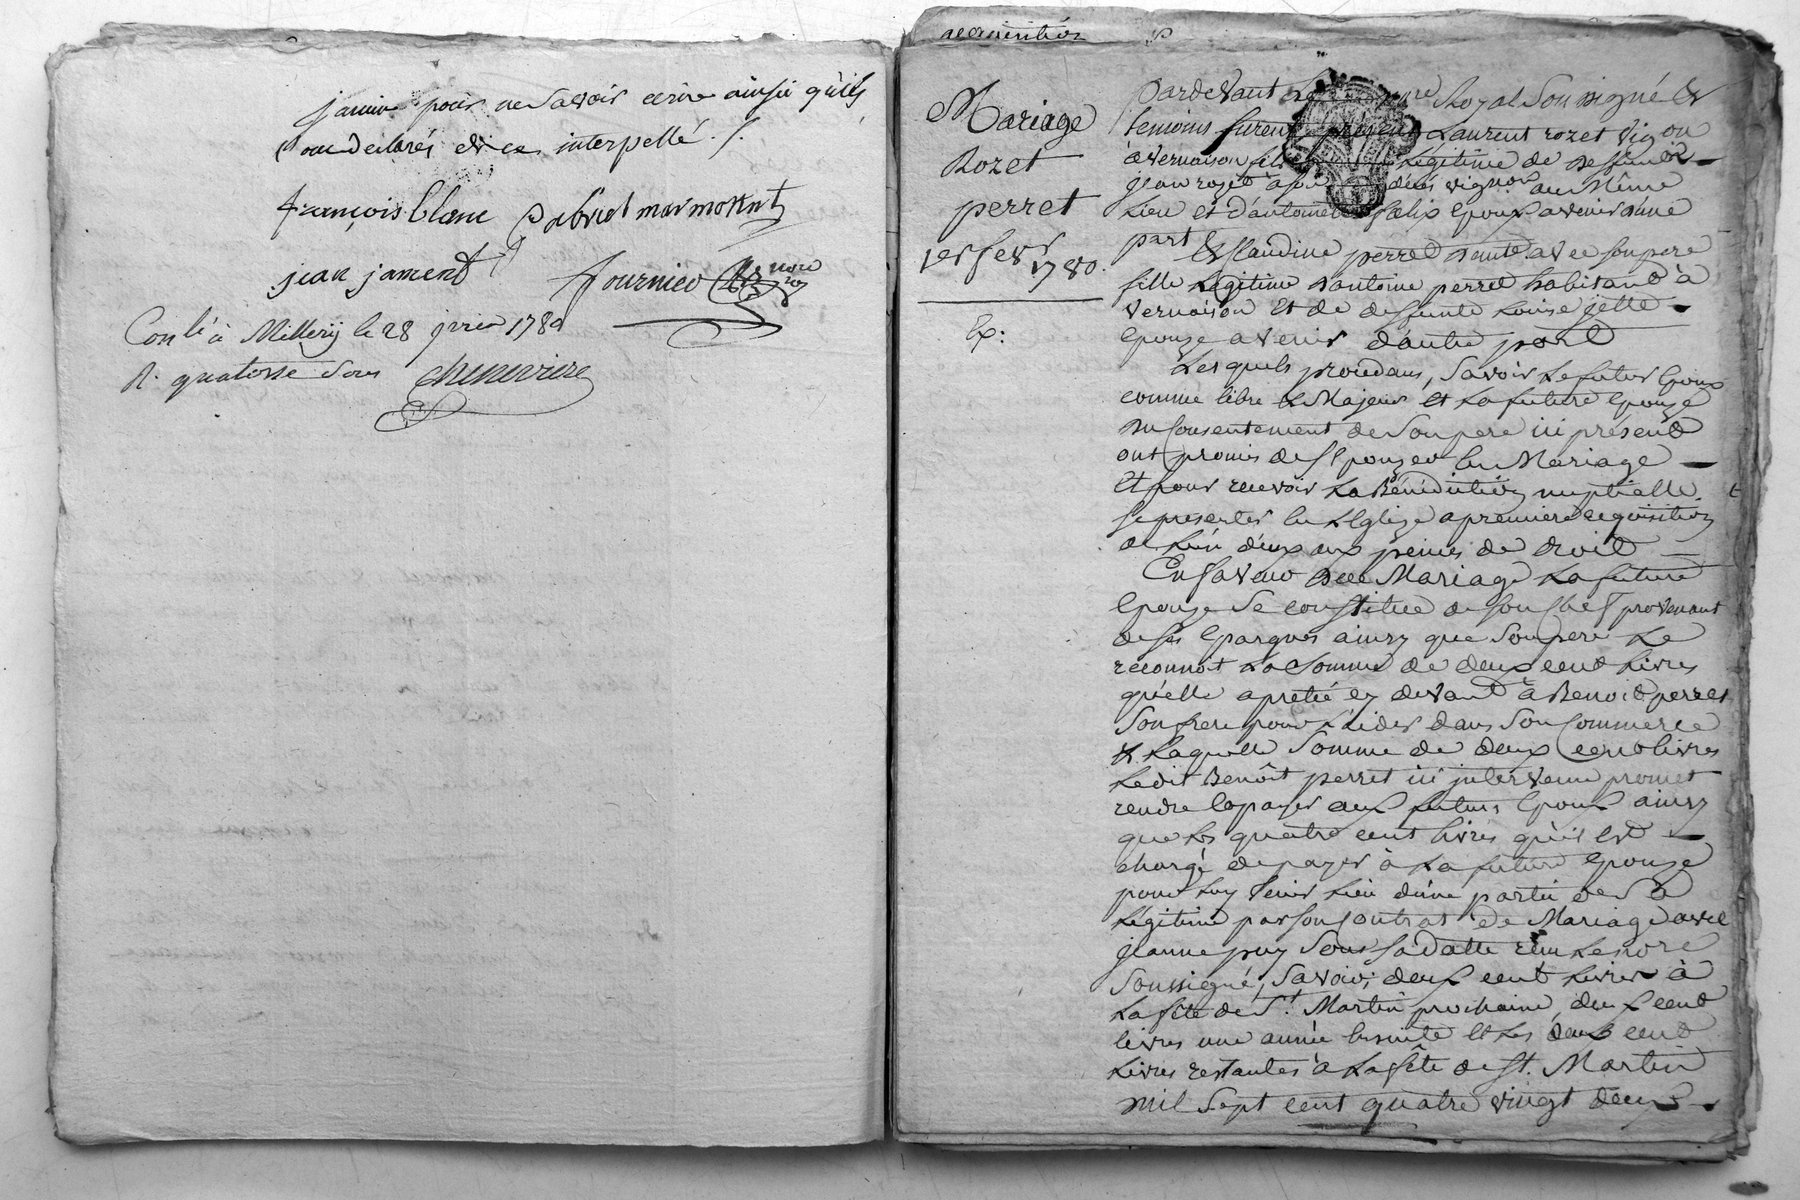 janvier pour ne savoir ecrire ainsi qu'ils
ont declarés de ce interpellé ./.
françois blanc gabriel marmonnt
jean jament fournier no.re roy
Con.lé à Millery le 28 jvier 1780
R. quatorse sous cheneviere
acquisition
Mariage
Rozet
perret
1er fevr 1780.
Ex:
Pardevant Le Royal Soussigné &
temoins furent présents Laurent rozet vigon
à Vernaison fils légitime de deffunt
jean rozet à son décés vignon au Même
Lieu et d'antoinette falix Epoux avenir d'une
part & Claudine perret dnte avec son pere
fille Légitime d'antoine perret habitant à
Vernaison Et de deffunte Louise jette
Epouze avenir d'autre part
Lesquels procedans, Savoir Le futur Epoux
comme libre & Majeur et La future Epouze
du Consentement de Son pere ici présent
ont promis de s'Epouzer en Mariage
Et pour recevoir La Bénédiction nuptialle
se presenter en L'Eglize a premiere requisition
de L'un d'eux aux peines de droit
En faveur du Mariage La future
Epouze Se constitue de son Chef provenant
de ses Epargnes ainsy que Son pere Le
reconnoit La Somme de deux cent Livres
qu'elle a pretée cy devant à Benoit perret
Son frere pour L'aider dans Son Commerce
& Laquelle Somme de deux Cent livres
Ledit Benôit perret ici intervenu promet
rendre Et payer aux futurs Epoux ainsy
que Les quatre cent livres qu'il est
chargé de payer à La future Epouze
pour Luy tenir Lieu d'une partie de Sa
Légitime par son Contrat de Mariage avec
jeanne puy Sous Sa Datte reçu Le no.re
Soussigné, Savoir; deux cent Livres à
La fête de St. Martin prochaine, deux cent
livres une année Ensuite Et Les deux cent
Livres restantes à La fête de St. Martin
mil Sept cent quatre vingt deux